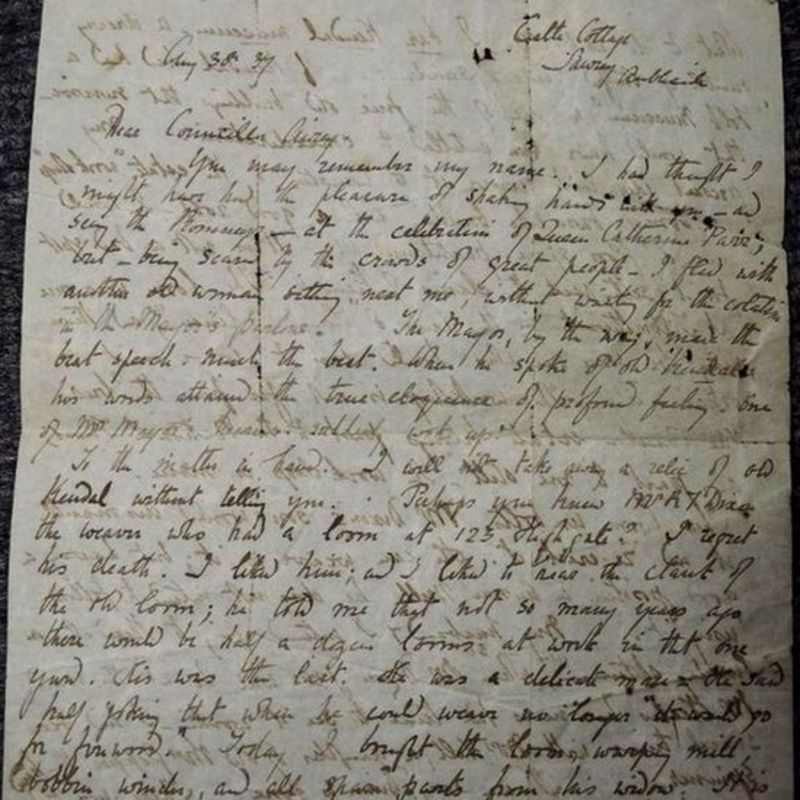 Castle Cottage
Aug 30th 37 Sawrey Ambleside
Dear Councillor Airey
You may remember my name. I had thought I
might have had the pleasure of shaking hands with you – and
seeing the Romneys – at the celebration of Queen Catherine Parr;
but – being scared by the crowds of great people – I fled with
another old woman sitting next me, without waiting for the collation
in the Mayor's parlour. The Mayor, by the way, made the
best speech – much the best. When he spoke of old Kendal
his words attained the true eloquence of profound feeling. One
of Mr Mayor's suddenly woke up!
To the matter in hand. I will not take away a relic of old
Kendal without telling you. Perhaps you knew Mr
the weaver who had a loom at 123 Highgate? I regret
his death. I liked him; and I liked to hear the clank of
the old loom; he told me that not so many years ago
there would be half a dozen looms at work in that one
yard. His was the last. He was a delicate man – He said
half joking that when he could weave no longer "it would go
for firewood." Today I bought the loom, warping mill –
bobbin winder, and all spare parts from his widow. It is